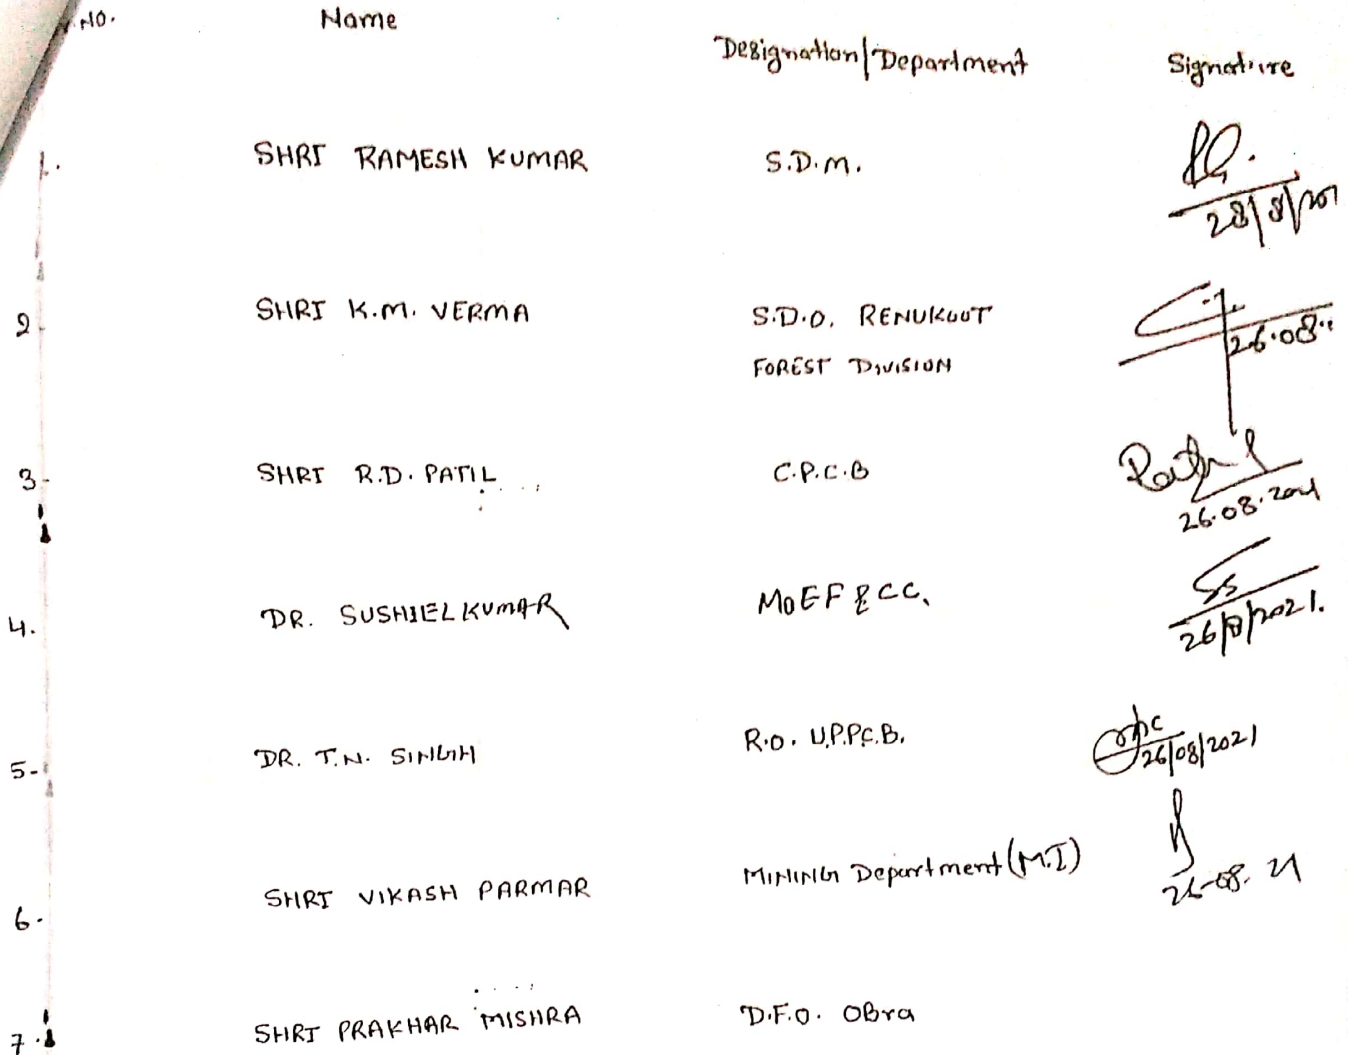 NO. Name Designation/Department Signature
1. SHRI RAMESH KUMAR S.D.M.
28/8/201
2 SHRI K.M. VERMA S.D.O. RENUKOOT
FOREST DIVISION
26.08..
3- SHRI R.D. PATIL C.P.C.B
26.08.2021
4. DR. SUSHIEL KUMAR MoEF & CC,
SS
26/8/2021.
5- DR. T.N. SINGH R.O. U.P.P.C.B.
26/08/2021
6. SHRI VIKASH PARMAR MINING Department (M.I)
26-08.21
7. SHRI PRAKHAR MISHRA D.F.O. OBra